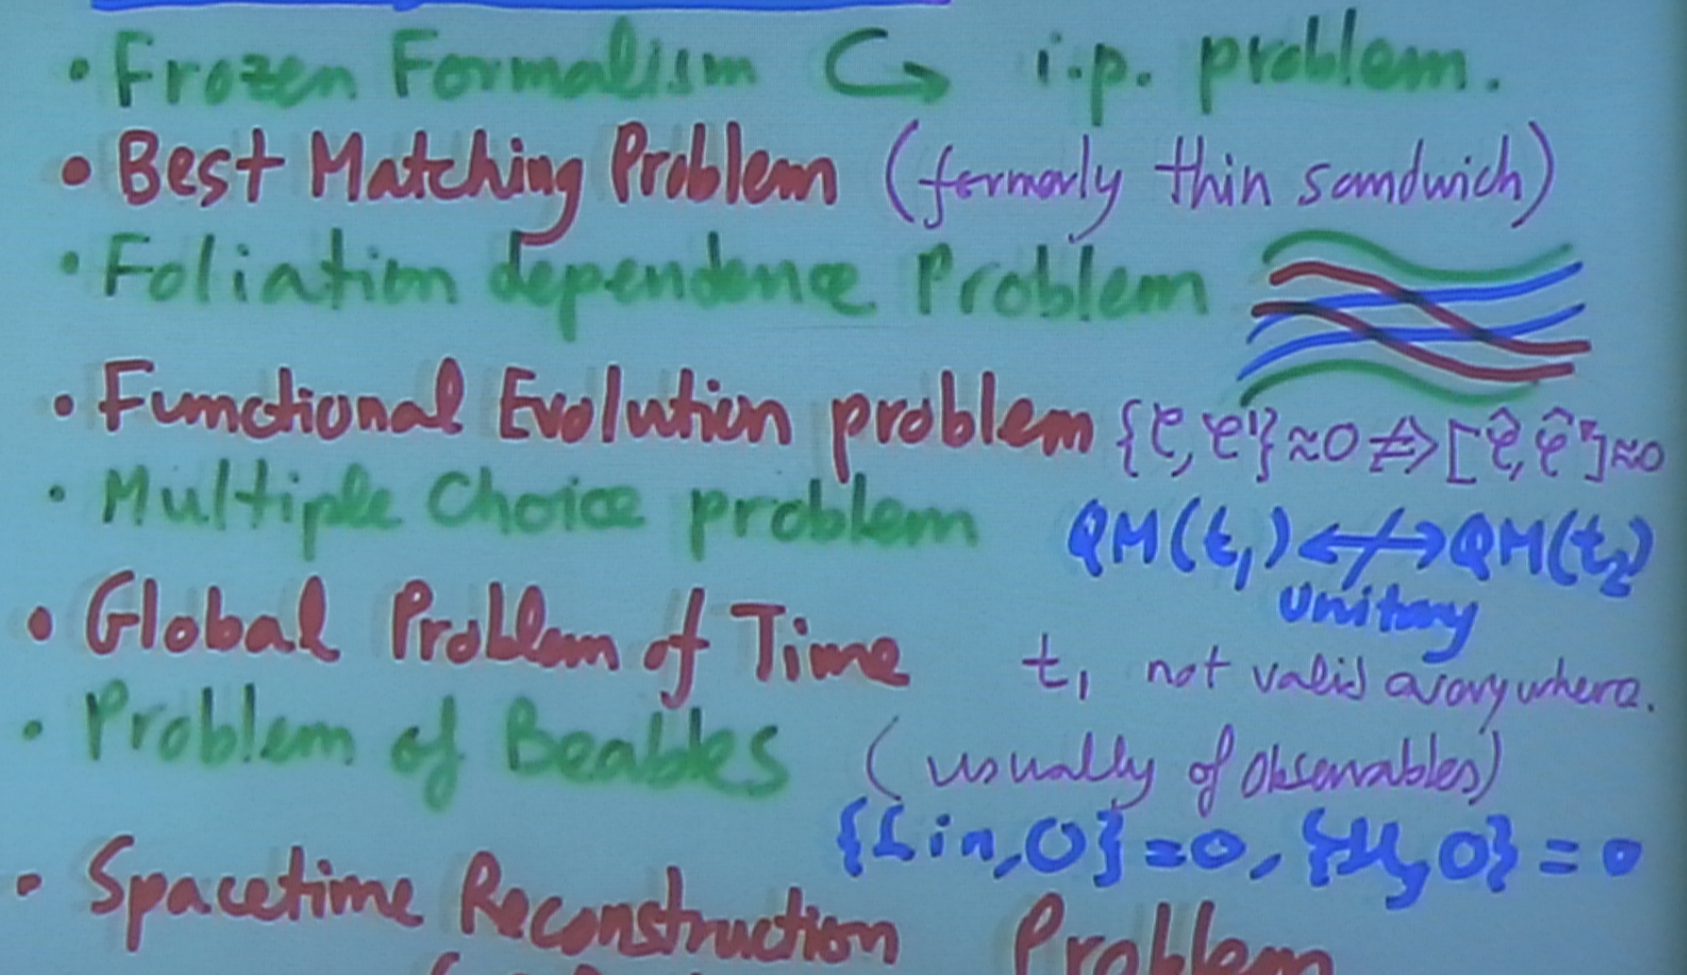 • Frozen Formalism ↪ i.p. problem.
• Best Matching Problem (formerly thin sandwich)
• Foliation dependence Problem
• Functional Evolution problem {C, C'} ≈ 0 ⇏ [Ĉ, Ĉ'] ≈ 0
• Multiple Choice problem QM(t₁) ↮ QM(t₂)
Unitary
• Global Problem of Time t₁ not valid everywhere.
• Problem of Beables (usually of observables)
{Lin, O} = 0, {H, O} = 0
• Spacetime Reconstruction Problem